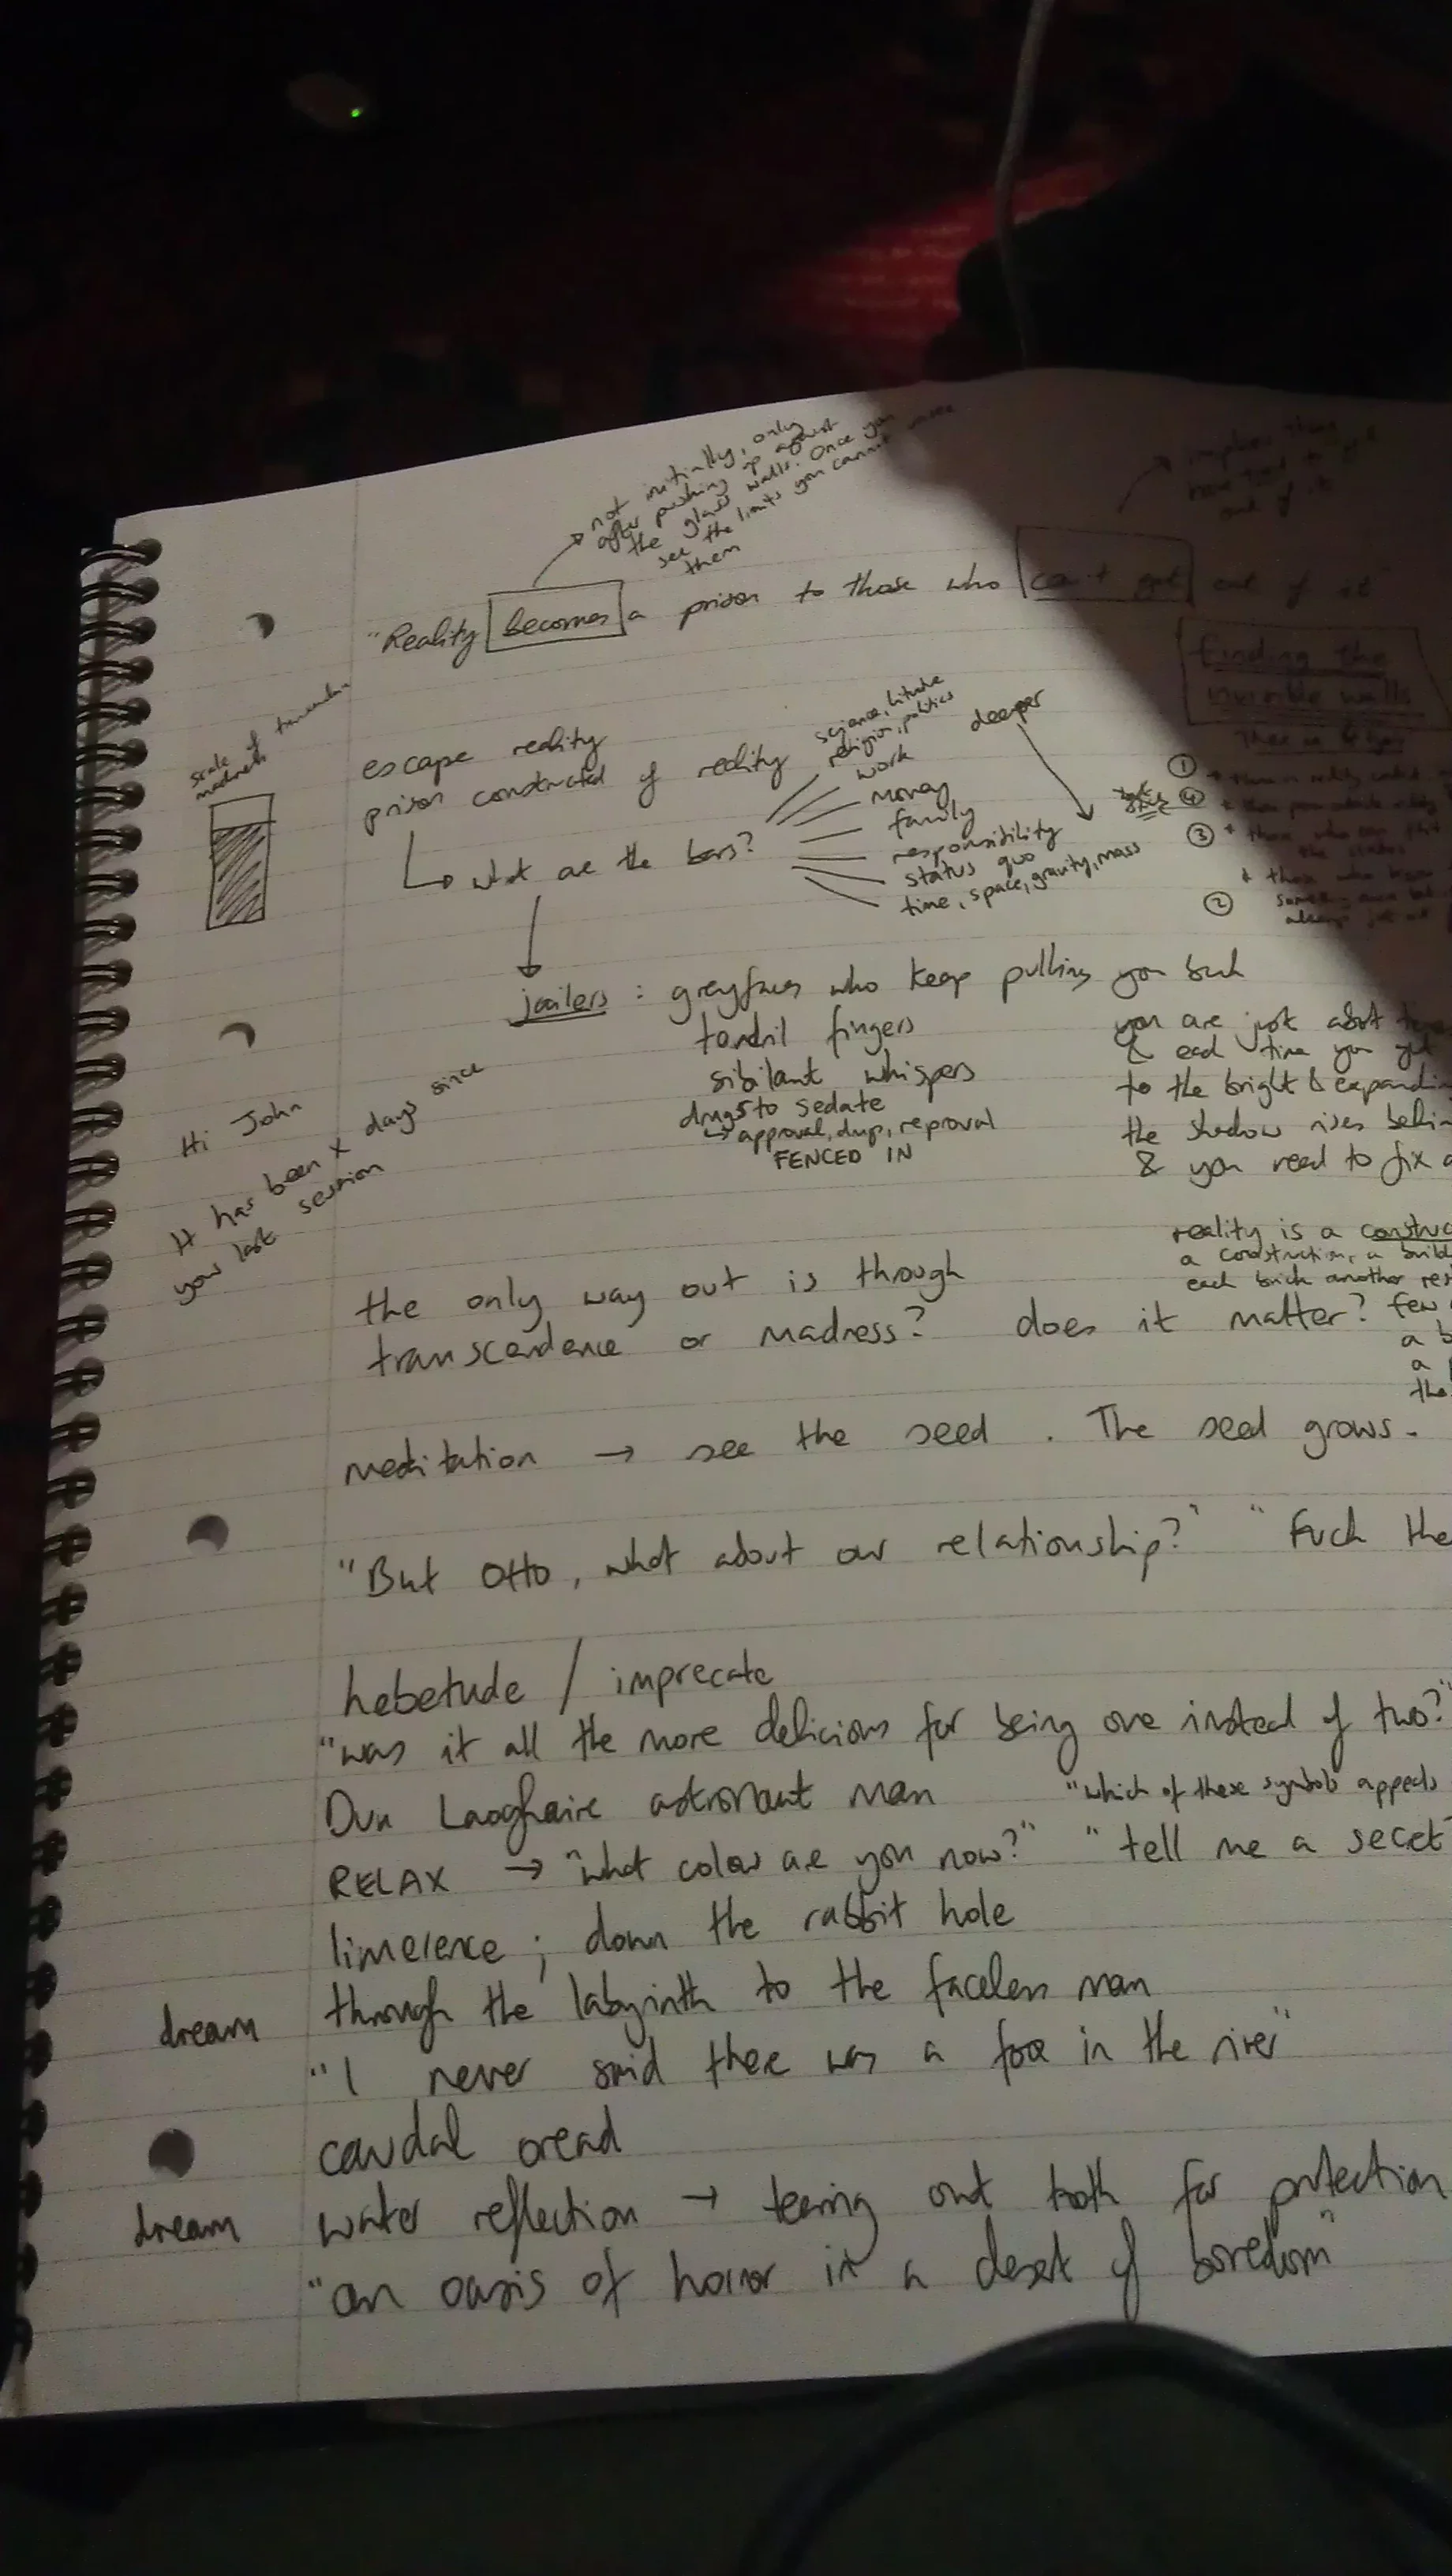 not initially, only
after pushing up against
the glass walls. Once you
see the limits you cannot
them
"Reality becomes a prison to those who can't get out of it"
finding the
invisible walls
scale of
madness
escape reality
prison constructed of reality
what are the bars?
science,
religion, politics
work
money
family
responsibility
status quo
time, space, gravity, mass
deeper
①
④
③
②
jailers : greyfaces who keep pulling you back
tendril fingers
sibilant whispers
drugs to sedate
approval, reproval
FENCED IN
you are just about
& each time you get
to the bright & expanding
the shadow rises behind
& you need to fix
Hi John
It has been x days since
your last session
reality is a
a construction, a
each brick another
the only way out is through
transcendence or madness? does it matter? few
a
a
the
meditation → see the seed . The seed grows.
"But Otto, what about our relationship?" "Fuck the
hebetude / imprecate
"was it all the more delicious for being one instead of two?"
Dun Laoghaire astronaut man
"which of these symbols appeals
RELAX → "what colour are you now?" "tell me a secret"
limerence ; down the rabbit hole
dream through the labyrinth to the faceless man
"I never said there was a in the river"
caudal oread
dream water reflection → tearing out tooth for protection
"an oasis of horror in a desert of boredom"